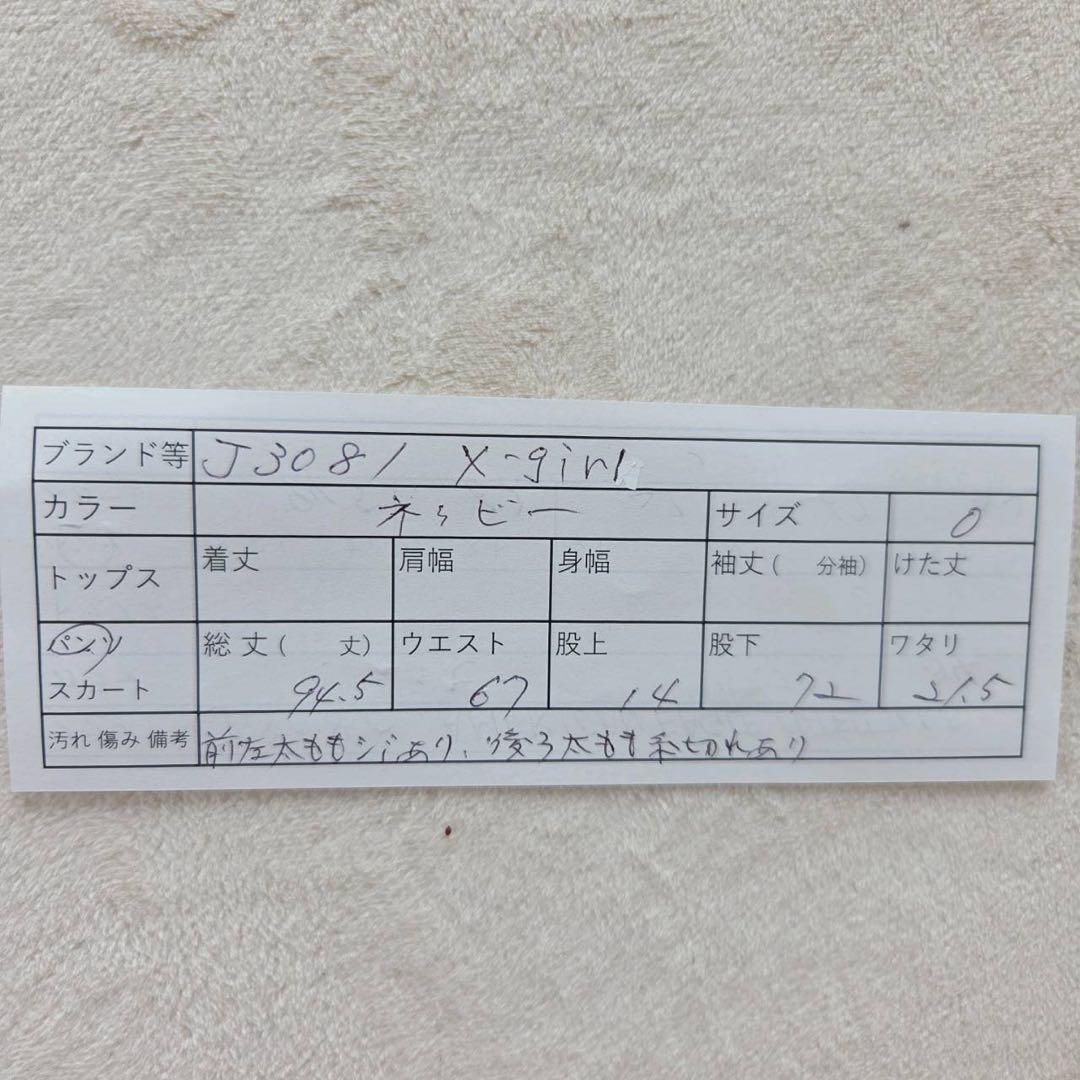 ブランド等 J3081 X-girl
カラー ネイビー サイズ 0
トップス 着丈 肩幅 身幅 袖丈( 分袖) けた丈
パンツ スカート 総丈( 丈) 94.5 ウエスト 67 股上 14 股下 72 ワタリ 21.5
汚れ 傷み 備考 前左太ももシミあり、後ろ太もも糸切れあり